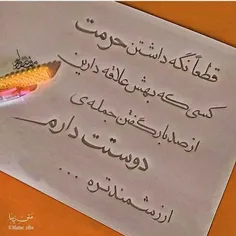 قطعاً نگه داشتن حرمت
کسی که بهش علاقه دارین
از صد بار گفتن جمله‌ی
دوستت دارم
ارزشمندتره ...
متن زیبا